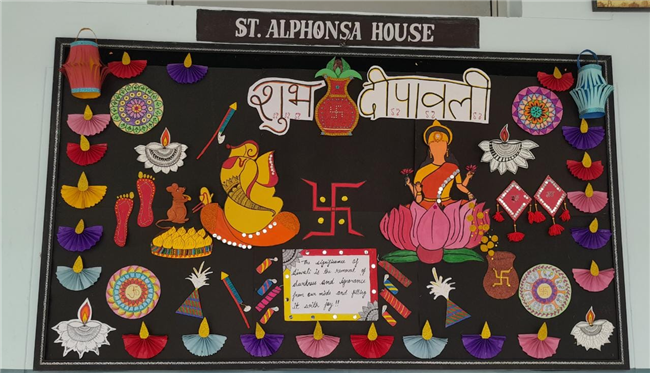 ST. ALPHONSA HOUSE
शुभ दीपावली
"The significance of
Diwali is the removal of
darkness and ignorance
from our minds and filling
it with joy!!